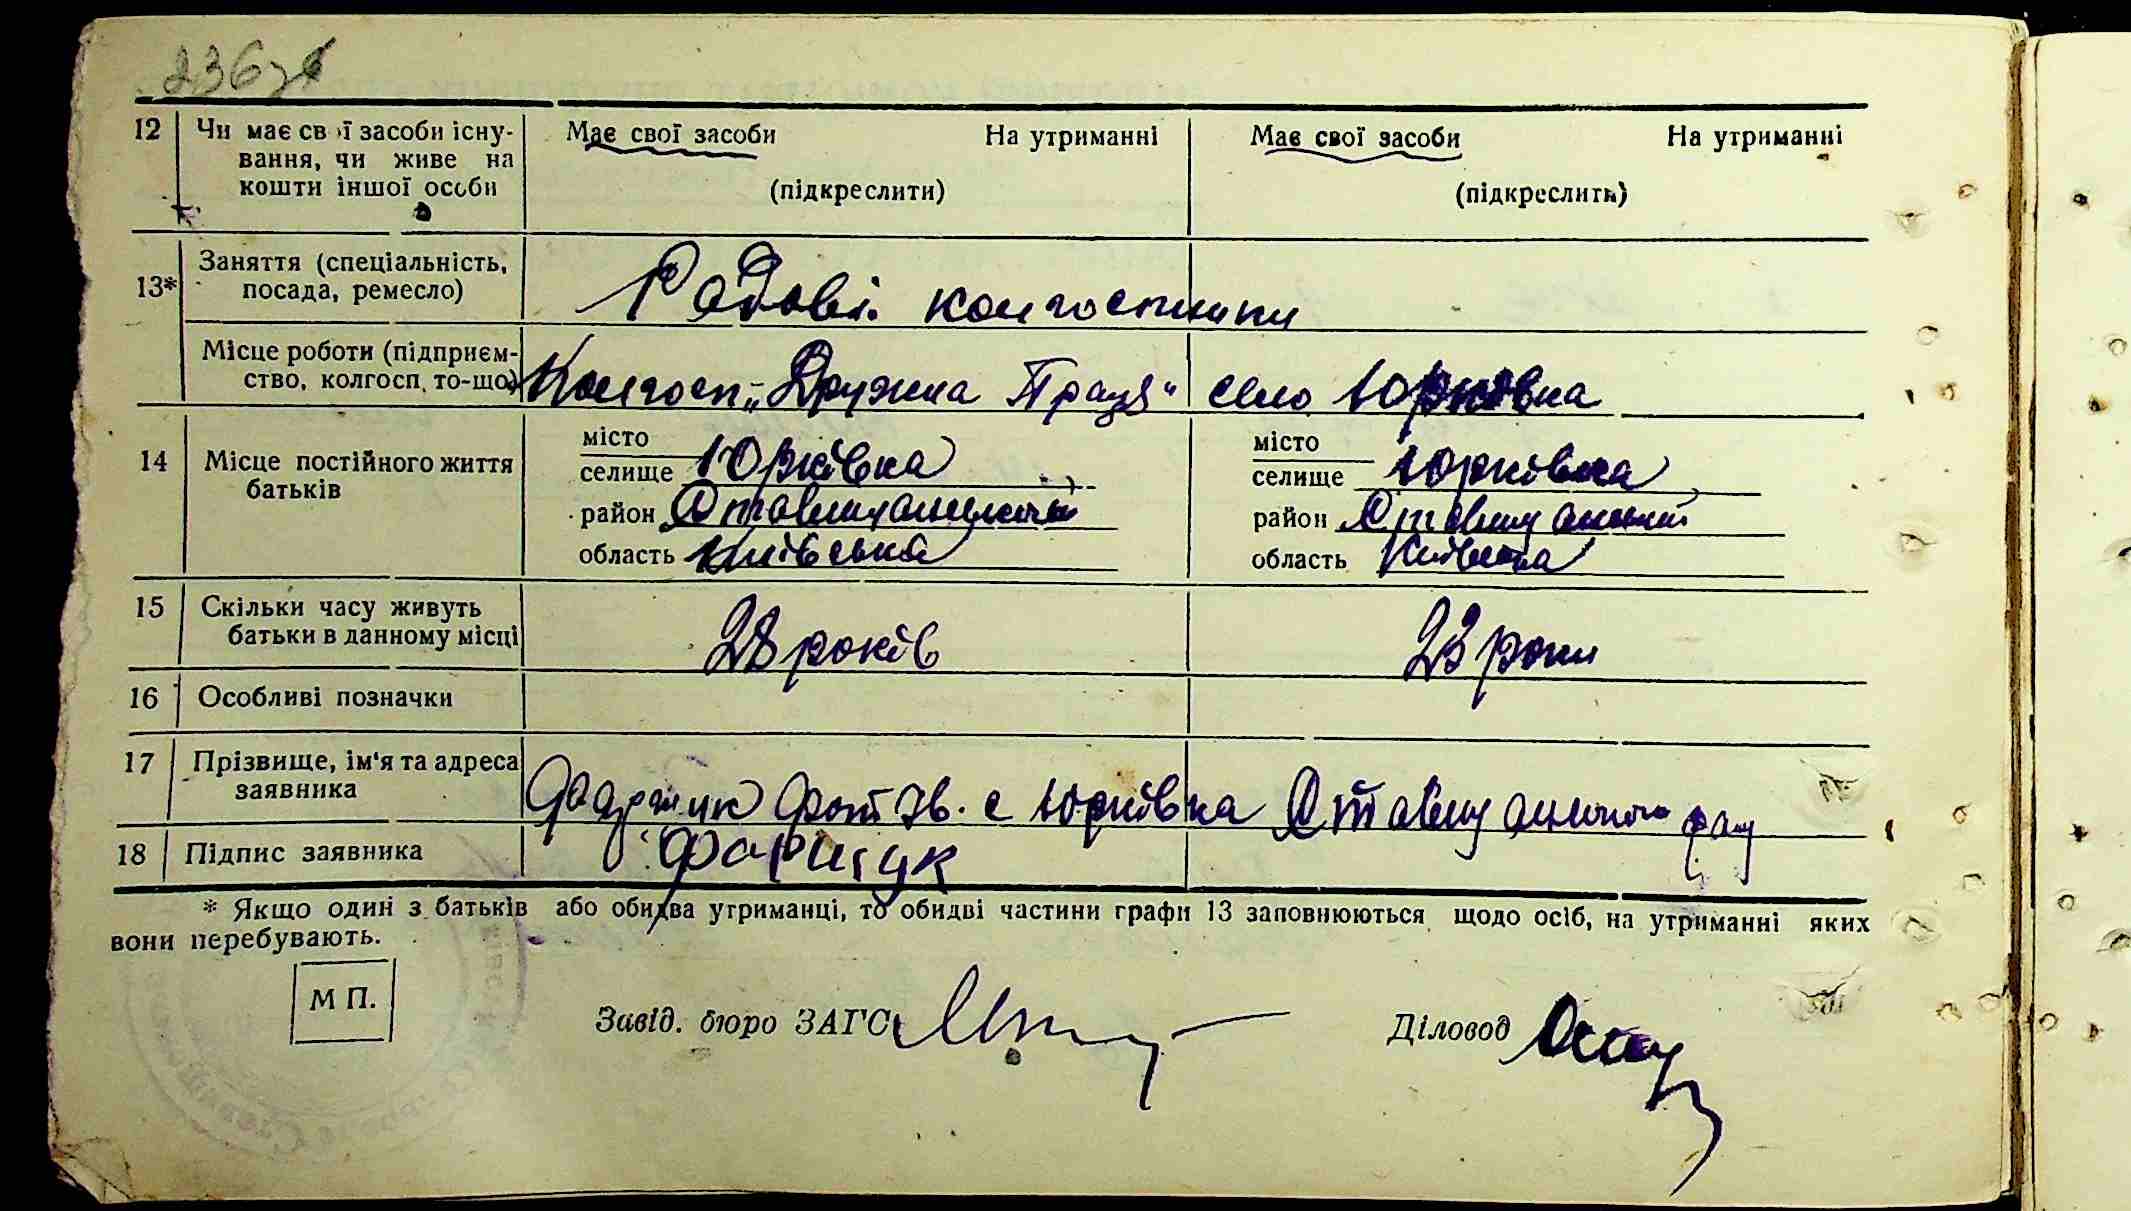 236
12 Чи має св ї засоби існу- Має свої засоби На утриманні Має свої засоби На утриманні
вання, чи живе на
кошти іншої особи (підкреслити) (підкреслить)
Заняття (спеціальність,
13* посада, ремесло) Рядові колгоспники
Місце роботи (підприєм-
ство, колгосп, то-що) Колгосп „Дружна Праця" село Юрківка
місто місто
14 Місце постійного життя селище Юрківка селище Юрківка
батьків район Ставищанський район Ставищанський
область Київська область Київська
15 Скільки часу живуть
батьки в данному місці 28 років 23 роки
16 Особливі позначки
17 Прізвище, ім'я та адреса
заявника Фарщук с Юрківка Ставищанського рай
18 Підпис заявника Фарщук
* Якщо один з батьків або обидва утриманці, то обидві частини графи 13 заповнюються щодо осіб, на утриманні яких
вони перебувають.
М П.
Завід. бюро ЗАГС Діловод